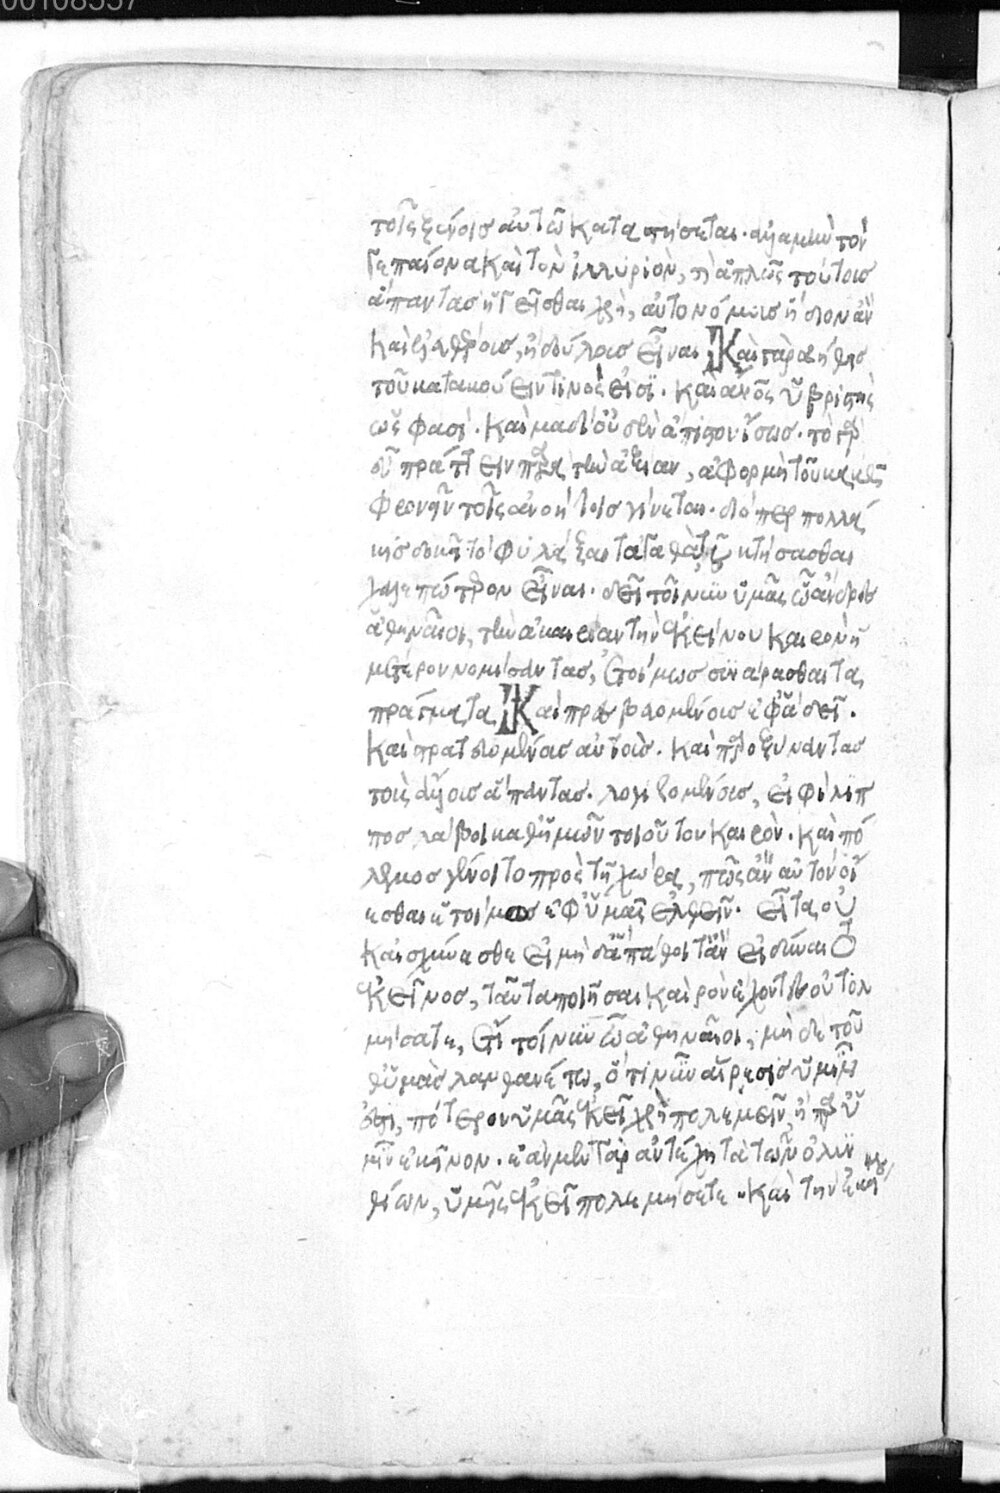 τοῖς ξένοισ αὐτῶ καταστήσεται· ἀλλὰ μὴν τόν
γε παίονα καὶ τὸν ἰλλυριὸν, ἢ ἁπλῶς τούτοισ
ἅπαντασ ἡγεῖσθαι χρὴ, αὐτονόμωισ ἥδιον ἂν
καὶ ἐλευθέροισ, ἢ δούλοισ εἶναι Καὶ γὰρ ἀήθεισ
τοῦ κατακούειν τινὸς εἰσϊ. καὶ ἄνθρωπος ὑβριστὴς
ὥς φασί. καὶ μὰ δί' οὐδὲν ἄπιστον ἴσωσ. τὸ γὰρ
εὖ πράττειν παρὰ τὴν ἀξίαν, ἀφορμὴ τοῦ κακῶς
φρονεῖν τοῖς ἀνοήτοισ γίνεται. διόπερ πολλά
κισ δοκεῖ τὸ φυλάξαι τἀγαθὰ τοῦ κτήσασθαι
χαλεπώτερον εἶναι. δεῖ τοίνυν ὑμᾶς ὦ ἄνδρες
ἀθηναῖοι, τὴν ἀκαιρίαν τὴν κείνου καιρὸν ἡ
μέτερον νομίσαντασ, ἑτοίμωσ συναρασθαι τὰ
πράγματα Καὶ πρεσβευομένουσ ἐφ' ἃ δεῖ.
καὶ στρατευομένουσ αὐτοὺσ. καὶ παροξύνοντασ
τοὺς ἄλλουσ ἅπαντασ. λογιζομένουσ, εἰ φίλιπ
ποσ λάβοι καθ' ἡμῶν τοιοῦτον καιρὸν. καὶ πό
λεμοσ γένοιτο πρὸς τῇ χώρα, πῶς ἂν αὐτὸν οἴ
εσθαι ἑτοίμωσ ἐφ' ὑμᾶς ἐλθεῖν. εἶτα οὐ
κ αἰσχύνεσθε εἰ μὴ δ' ἃ πάθοιτ' ἂν εἰ δύναιτο
κεῖνος, ταῦτα ποιῆσαι καιρὸν ἔχοντες οὐ τολ
μήσατε, ἔτι τοίνυν ὦ ἀθηναῖοι, μὴ δὲ τοῦ
θ' ὑμᾶς λανθανέτω, ὅτι νῦν αἵρεσίσ ὑμῖν
ἐστι, πότερον ὑμᾶς κεῖ χρὴ πολεμεῖν, ἢ παρ' ὑ
μῖν ἐκεῖνον. ἐὰν μὲν γὰρ ἀντέχη τὰ τῶν ὀλυν
θίων, ὑμεῖς κεῖ πολεμήσετε καὶ τὴν ἐκεί
νου